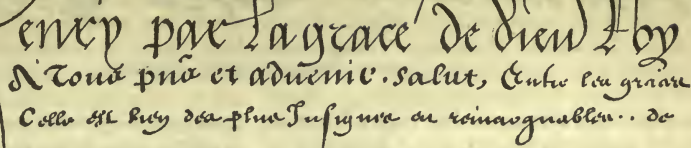 enry par la grace de dieu Roy
A Tous pn̄s et aduenir. salut, Entre les graces
Celle est bien des plus Insignes et remarquables.. de